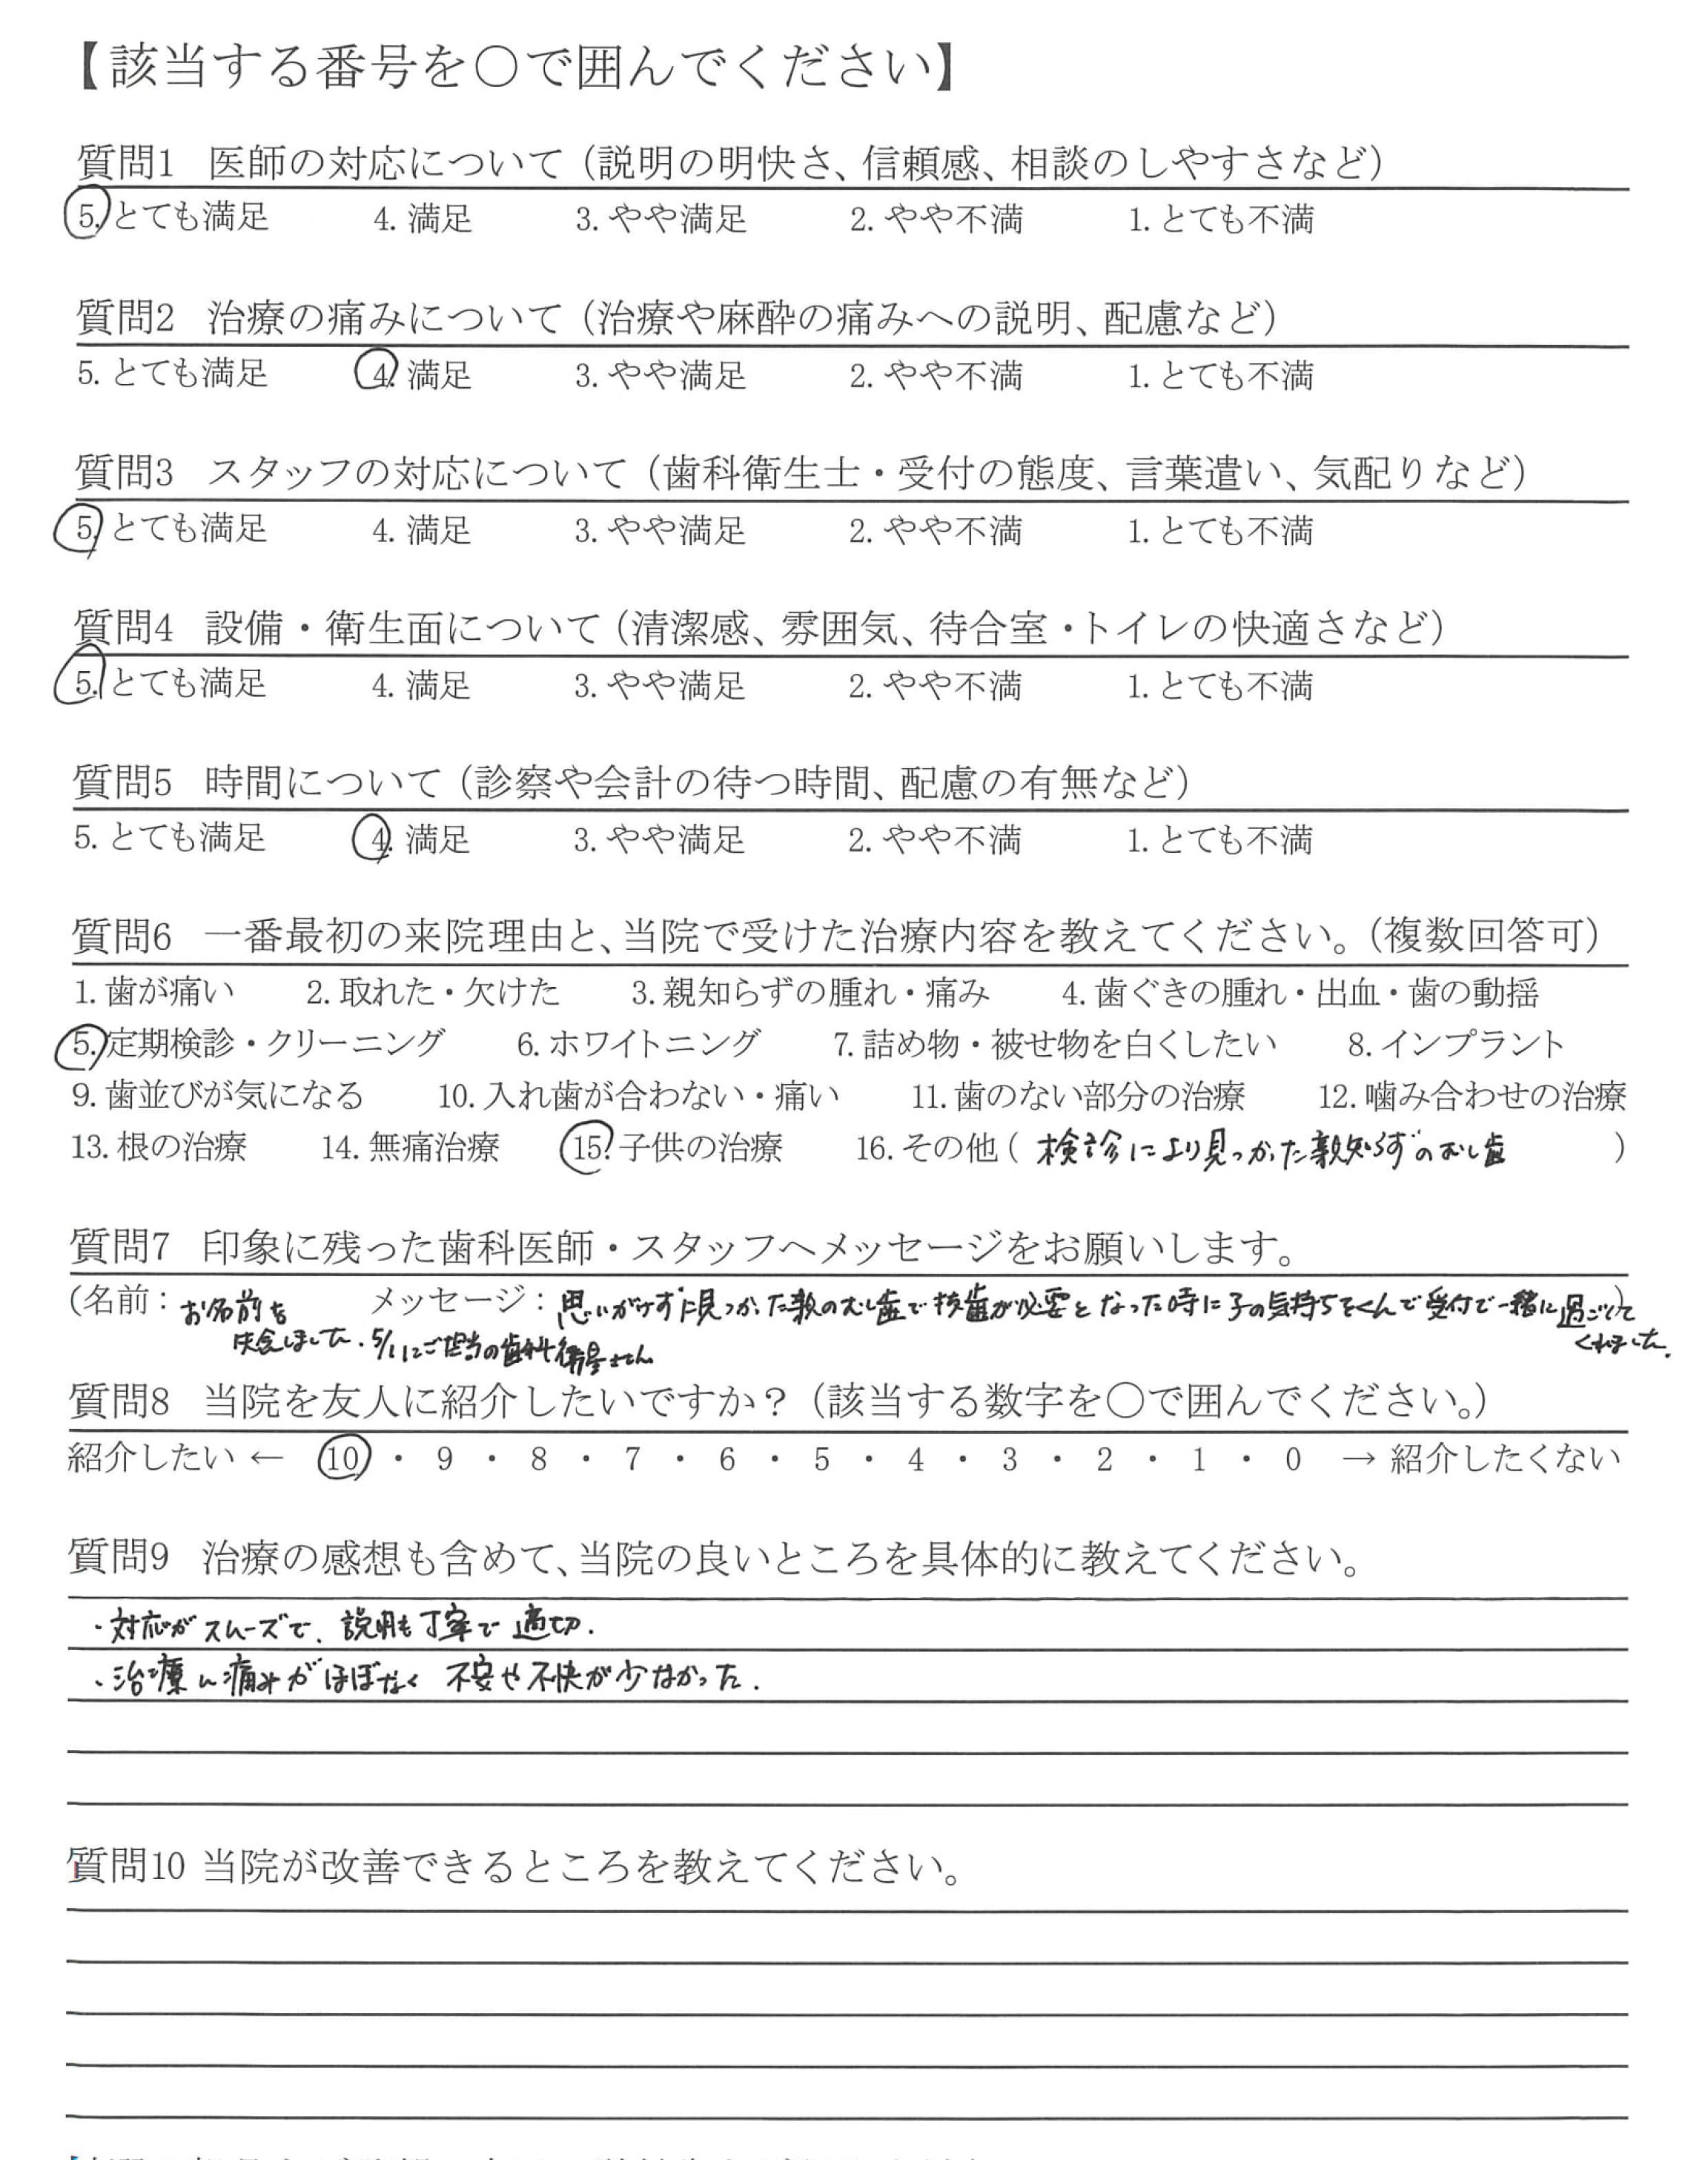 【該当する番号を〇で囲んでください】
質問1 医師の対応について（説明の明快さ、信頼感、相談のしやすさなど）
5. とても満足 4. 満足 3. やや満足 2. やや不満 1. とても不満
質問2 治療の痛みについて（治療や麻酔の痛みへの説明、配慮など）
5. とても満足 4. 満足 3. やや満足 2. やや不満 1. とても不満
質問3 スタッフの対応について（歯科衛生士・受付の態度、言葉遣い、気配りなど）
5. とても満足 4. 満足 3. やや満足 2. やや不満 1. とても不満
質問4 設備・衛生面について（清潔感、雰囲気、待合室・トイレの快適さなど）
5. とても満足 4. 満足 3. やや満足 2. やや不満 1. とても不満
質問5 時間について（診察や会計の待つ時間、配慮の有無など）
5. とても満足 4. 満足 3. やや満足 2. やや不満 1. とても不満
質問6 一番最初の来院理由と、当院で受けた治療内容を教えてください。（複数回答可）
1. 歯が痛い 2. 取れた・欠けた 3. 親知らずの腫れ・痛み 4. 歯ぐきの腫れ・出血・歯の動揺
5. 定期検診・クリーニング 6. ホワイトニング 7. 詰め物・被せ物を白くしたい 8. インプラント
9. 歯並びが気になる 10. 入れ歯が合わない・痛い 11. 歯のない部分の治療 12. 噛み合わせの治療
13. 根の治療 14. 無痛治療 15. 子供の治療 16. その他（検診により見つかった親知らずのむし歯）
質問7 印象に残った歯科医師・スタッフへメッセージをお願いします。
（名前：お名前を メッセージ：思いがけず見つかった親のむし歯で抜歯が必要となった時に子の気持ちをくんで受付で一緒に過ごして）
失念しました。5/1にご担当の歯科衛生士さん くれました。
質問8 当院を友人に紹介したいですか？（該当する数字を〇で囲んでください。）
紹介したい ← 10 ・ 9 ・ 8 ・ 7 ・ 6 ・ 5 ・ 4 ・ 3 ・ 2 ・ 1 ・ 0 → 紹介したくない
質問9 治療の感想も含めて、当院の良いところを具体的に教えてください。
・対応がスムーズで、説明も丁寧で適切.
・治療に痛みがほぼなく 不安や不快が少なかった.
質問10 当院が改善できるところを教えてください。